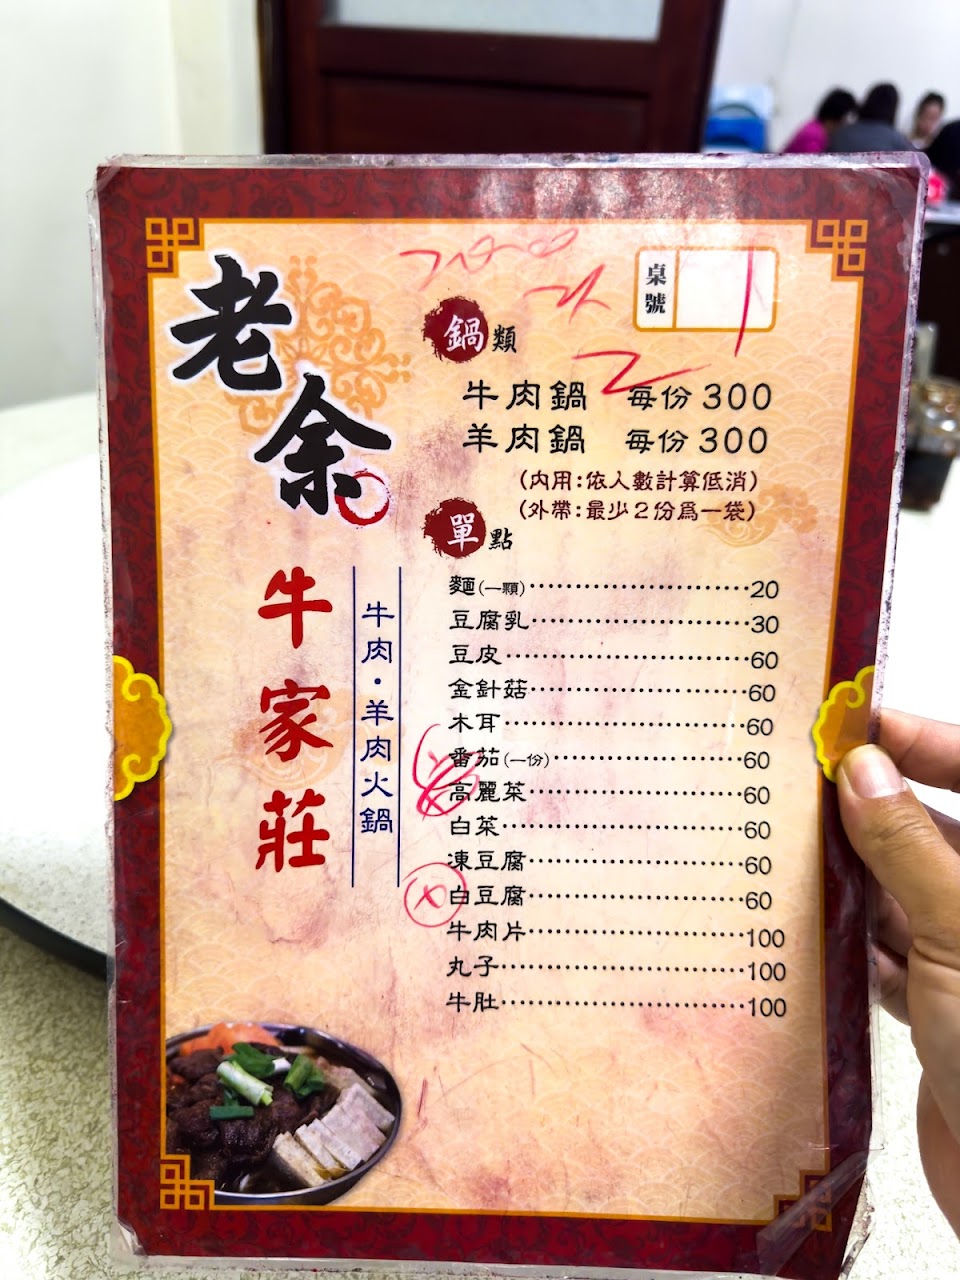 老余
牛家莊
牛肉・羊肉火鍋
桌號
鍋類
牛肉鍋 每份300
羊肉鍋 每份300
(內用:依人數計算低消)
(外帶:最少2份爲一袋)
單點
麵(一顆)…………………………20
豆腐乳…………………………30
豆皮…………………………60
金針菇…………………………60
木耳…………………………60
番茄(一份)…………………………60
高麗菜…………………………60
白菜…………………………60
凍豆腐…………………………60
白豆腐…………………………60
牛肉片…………………………100
丸子…………………………100
牛肚…………………………100